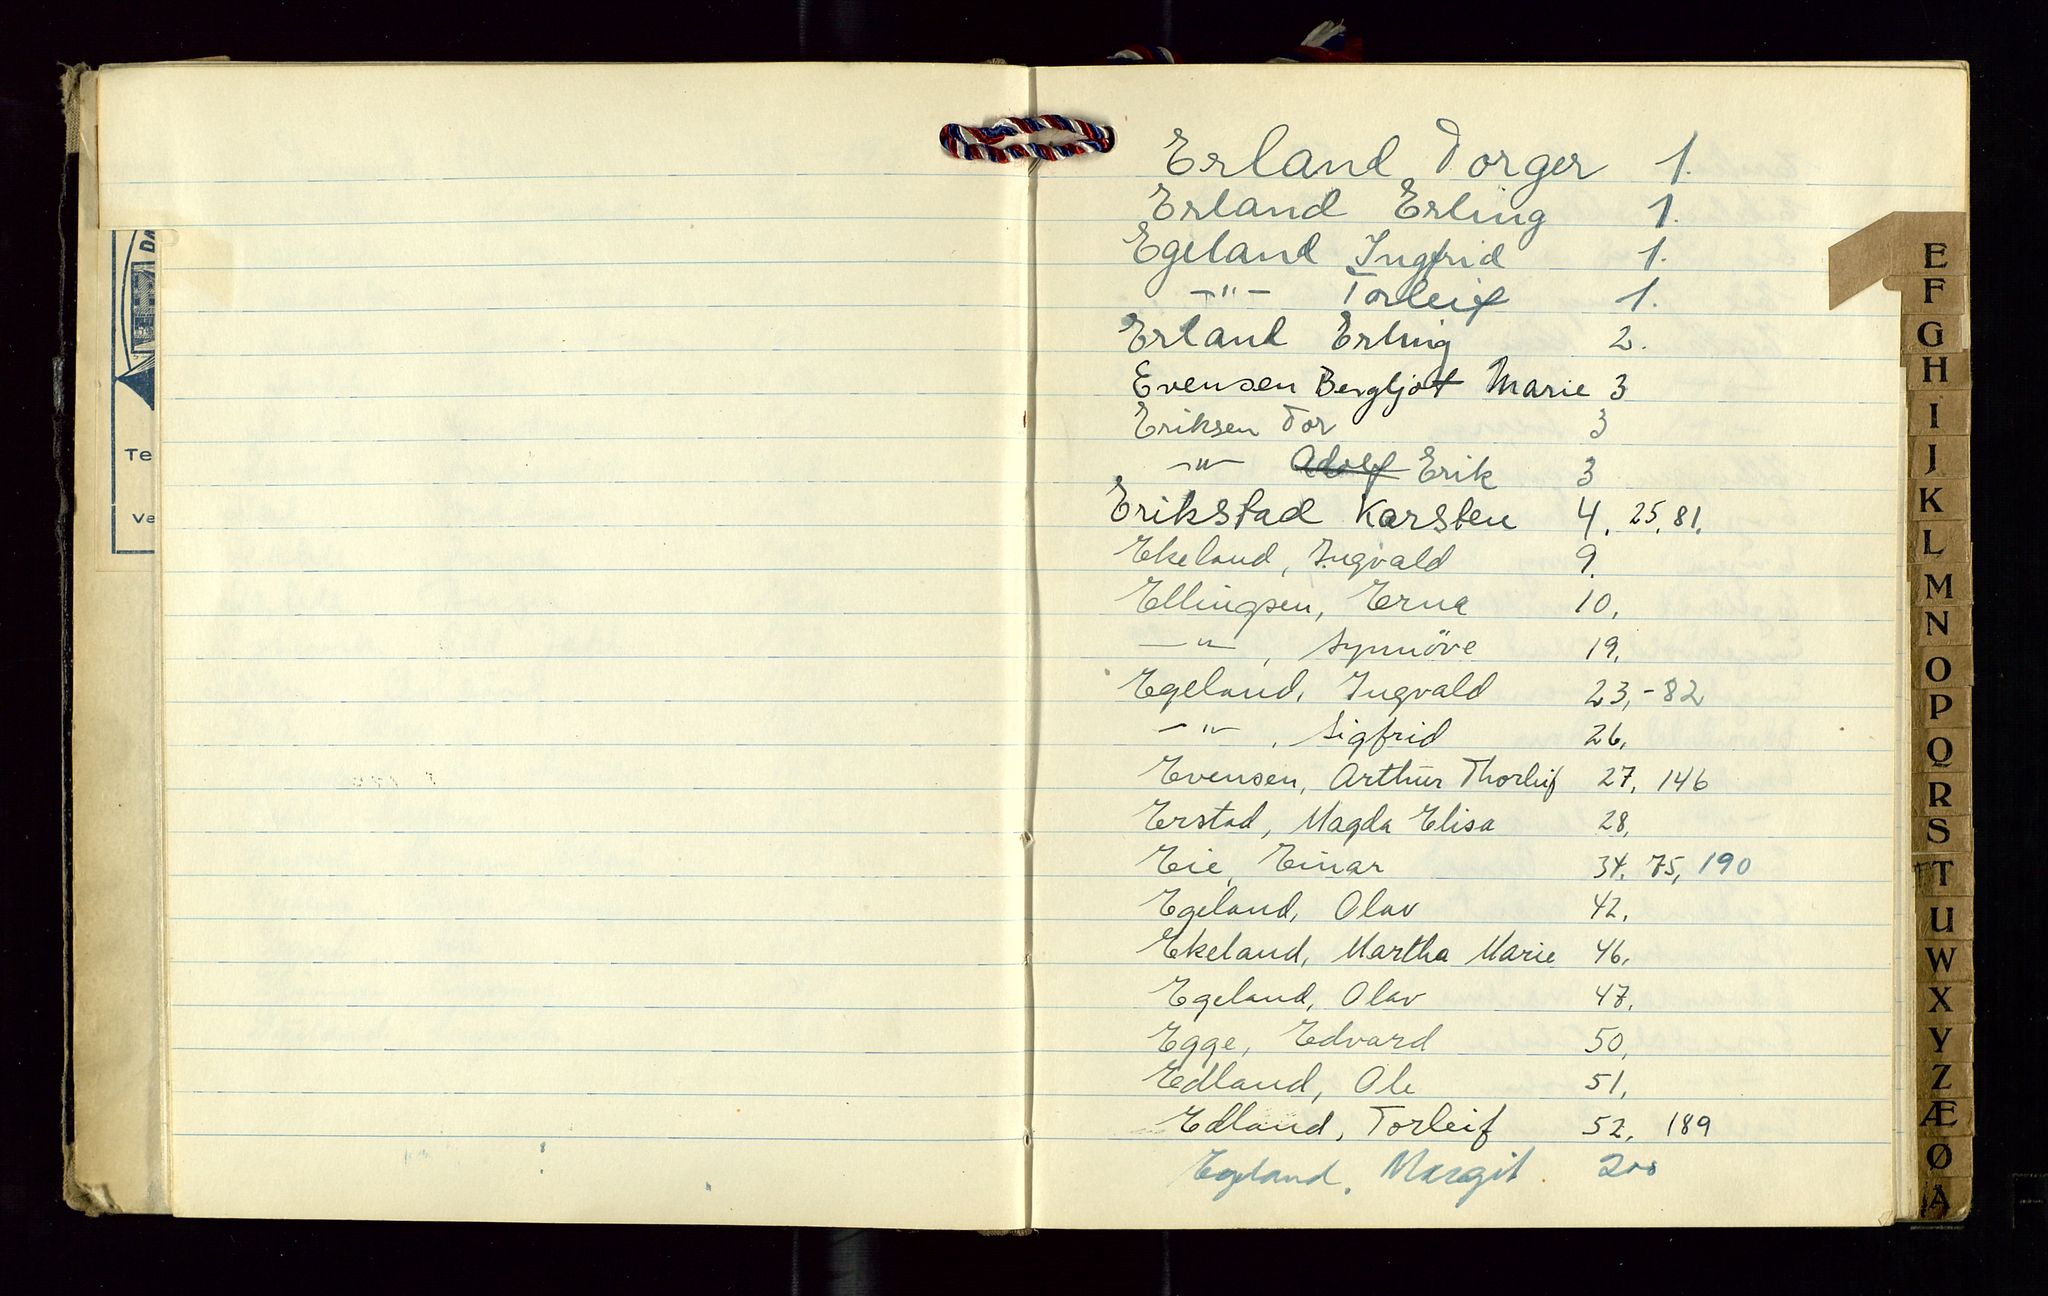 DA
Te
Ve
Erland Torger 1.
Erland Erling 1.
Egeland Ingfrid 1.
-"- Torleif 1.
Erland Erling 2.
Evensen Bergljot Marie 3
Eriksen Tor 3
-"- Adolf Erik 3
Erikstad Karsten 4, 25, 81.
Ekeland, Ingvald 9.
Ellingsen, Erna 10,
-"-, Synnöve 19,
Egeland, Ingvald 23,-82
-"-, Sigfrid 26,
Evensen, Arthur Thorleif 27, 146
Erstad, Magda Elisa 28,
Eie, Einar 34, 75, 190
Egeland, Olav 42,
Ekeland, Martha Marie 46,
Egeland, Olav 47,
Egge, Edvard 50,
Edland, Ole 51,
Edland, Torleif 52, 189
Egeland, Margit. 200
E
F
G
H
I
J
K
L
M
N
O
P
Q
R
S
T
U
W
X
Y
Z
Æ
Ø
A